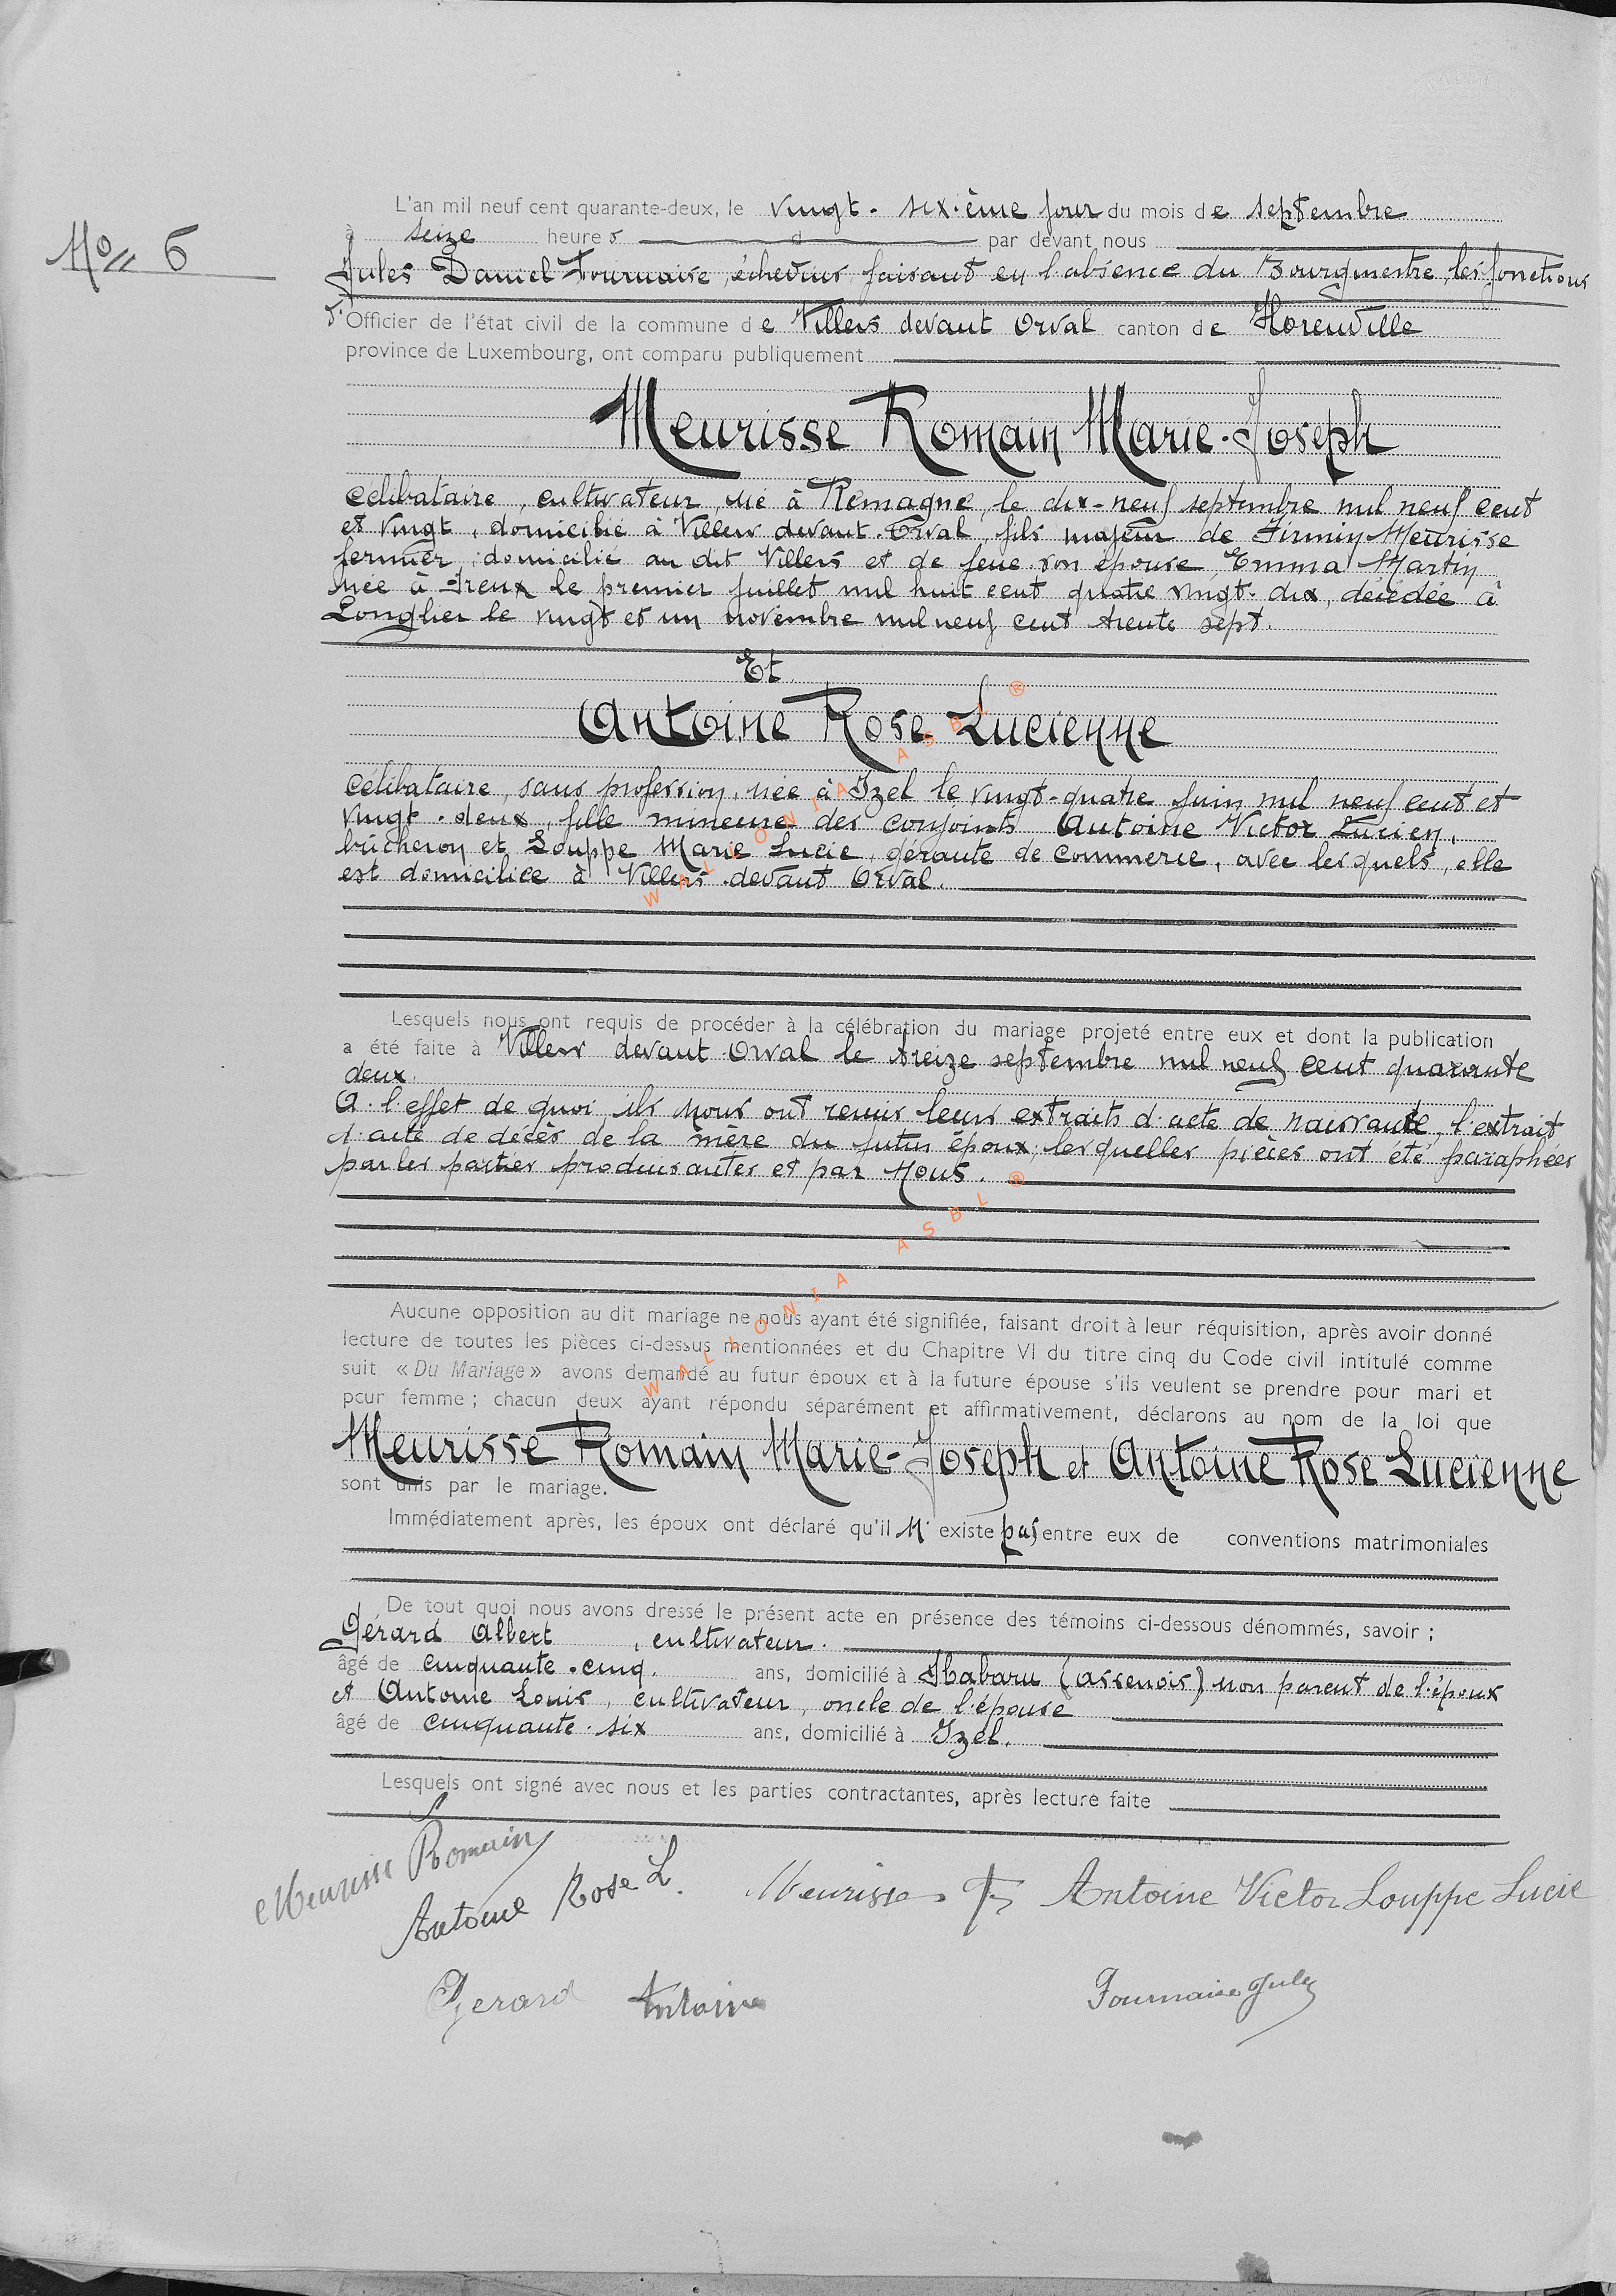 No 6
L'an mil neuf cent quarante-deux, le vingt-sixième jour du mois de septembre
à seize heures d par devant nous
Jules Daniel Fournaise, échevin faisant en l'absence du Bourgmestre, les fonctions
d'Officier de l'état civil de la commune de Villers devant Orval canton de Florenville
province de Luxembourg, ont comparu publiquement
Meurisse Romain Marie-Joseph
célibataire, cultivateur, né à Remagne, le dix-neuf septembre mil neuf cent
et vingt, domicilié à Villers devant-Orval, fils majeur de Firmin Meurisse
fermier, domicilié au dit Villers et de feue son épouse, Emma Martin
née à Freux le premier juillet mil huit cent quatre vingt-dix, décédée à
Longlier le vingt et un novembre mil neuf cent trente sept.
Et
Antoine Rose Lucienne
célibataire, sans profession, née à Izel le vingt-quatre juin mil neuf cent et
vingt-deux, fille mineure des conjoints Antoine Victor Lucien,
bûcheron et Louppe Marie Lucie, gérante de commerce, avec lesquels, elle
est domiciliée à Villers-devant Orval.
Lesquels nous ont requis de procéder à la célébration du mariage projeté entre eux et dont la publication
a été faite à Villers devant-Orval le treize septembre mil neuf cent quarante
deux.
A l'effet de quoi, ils Nous ont remis leurs extraits d'acte de naissante, l'extrait
d'acte de décès de la mère du futur époux; lesquelles pièces ont été paraphées
par les parties produisantes et par Nous.
Aucune opposition au dit mariage ne nous ayant été signifiée, faisant droit à leur réquisition, après avoir donné
lecture de toutes les pièces ci-dessus mentionnées et du Chapitre VI du titre cinq du Code civil intitulé comme
suit «Du Mariage» avons demandé au futur époux et à la future épouse s'ils veulent se prendre pour mari et
pour femme; chacun deux ayant répondu séparément et affirmativement, déclarons au nom de la loi que
Meurisse Romain Marie-Joseph et Antoine Rose Lucienne
sont unis par le mariage.
Immédiatement après, les époux ont déclaré qu'il n'existe pas entre eux de conventions matrimoniales
De tout quoi nous avons dressé le présent acte en présence des témoins ci-dessous dénommés, savoir;
Gérard Albert, cultivateur.
âgé de cinquante-cinq. ans, domicilié à Habaru (Assenois) non parent de l'époux
et Antoine Louis, cultivateur, oncle de l'épouse
âgé de cinquante-six ans, domicilié à Izel.
Lesquels ont signé avec nous et les parties contractantes, après lecture faite
Meurisse Romain
Antoine Rose L. Meurisse F Antoine Victor Louppe Lucie
Gerard Antoine Fournaise Jules
WALLONIA ASBL ®
WALLONIA ASBL ®